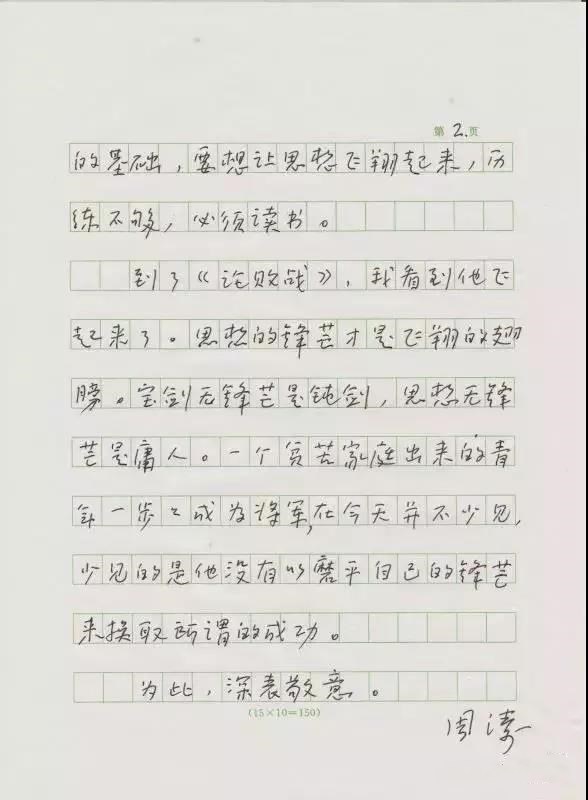 第2页
的基础，要想让思想飞翔起来，历
练不够，必须读书。
到了《论败战》，我看到他飞
起来了。思想的锋芒才是飞翔的翅
膀。宝剑无锋芒是钝剑，思想无锋
芒是庸人。一个贫苦家庭出来的青
年一步々成为将军，在今天并不少见，
少见的是他没有以磨平自己的锋芒
来换取所谓的成功。
为此，深表敬意。
(15×10=150)
周涛